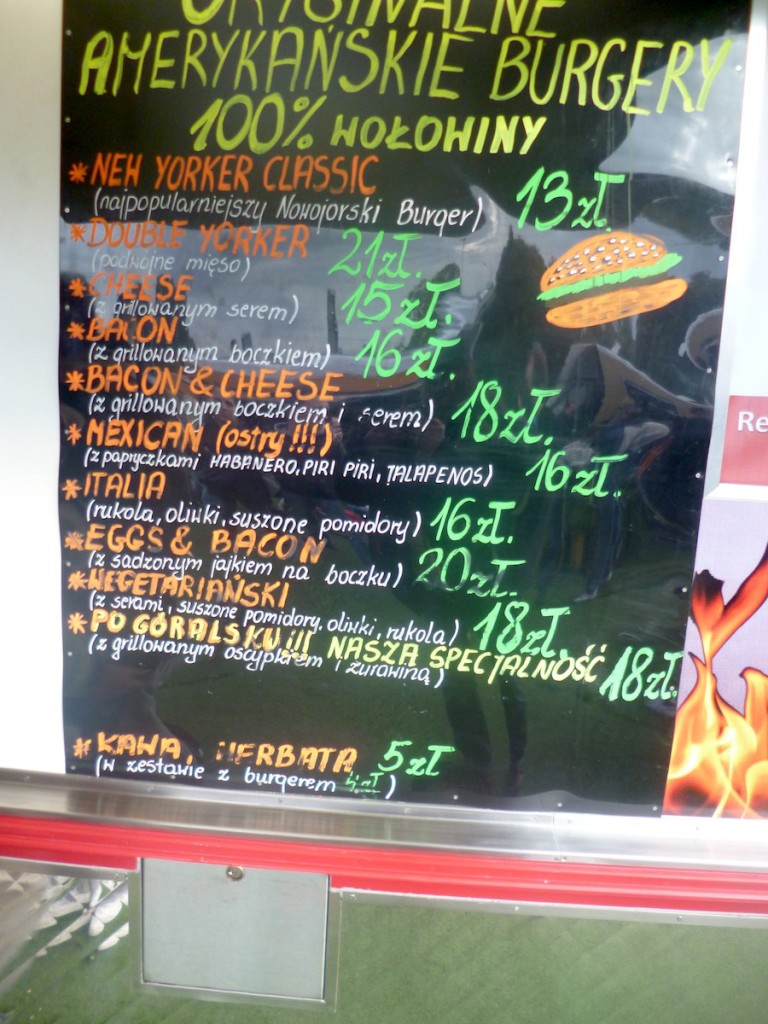 ORYGINALNE
AMERYKAŃSKIE BURGERY
100% WOŁOWINY
* NEW YORKER CLASSIC 13zł.
(najpopularniejszy Nowojorski Burger)
* DOUBLE YORKER 21zł.
(podwójne mięso)
* CHEESE 15zł.
(z grillowanym serem)
* BACON 16zł.
(z grillowanym boczkiem)
* BACON & CHEESE 18zł.
(z grillowanym boczkiem i serem)
* MEXICAN (ostry!!!) 16zł.
(z papryczkami HABANERO, PIRI PIRI, JALAPENOS)
* ITALIA 16zł.
(rukola, oliwki, suszone pomidory)
* EGGS & BACON 20zł.
(z sadzonym jajkiem na boczku)
* WEGETARIAŃSKI 18zł.
(z serami, suszone pomidory, oliwki, rukola)
* PO GÓRALSKU!!! NASZA SPECJALNOŚĆ 18zł.
(z grillowanym oscypkiem i żurawiną)
* KAWA, HERBATA 5zł
(w zestawie z burgerem 4zł)
Re